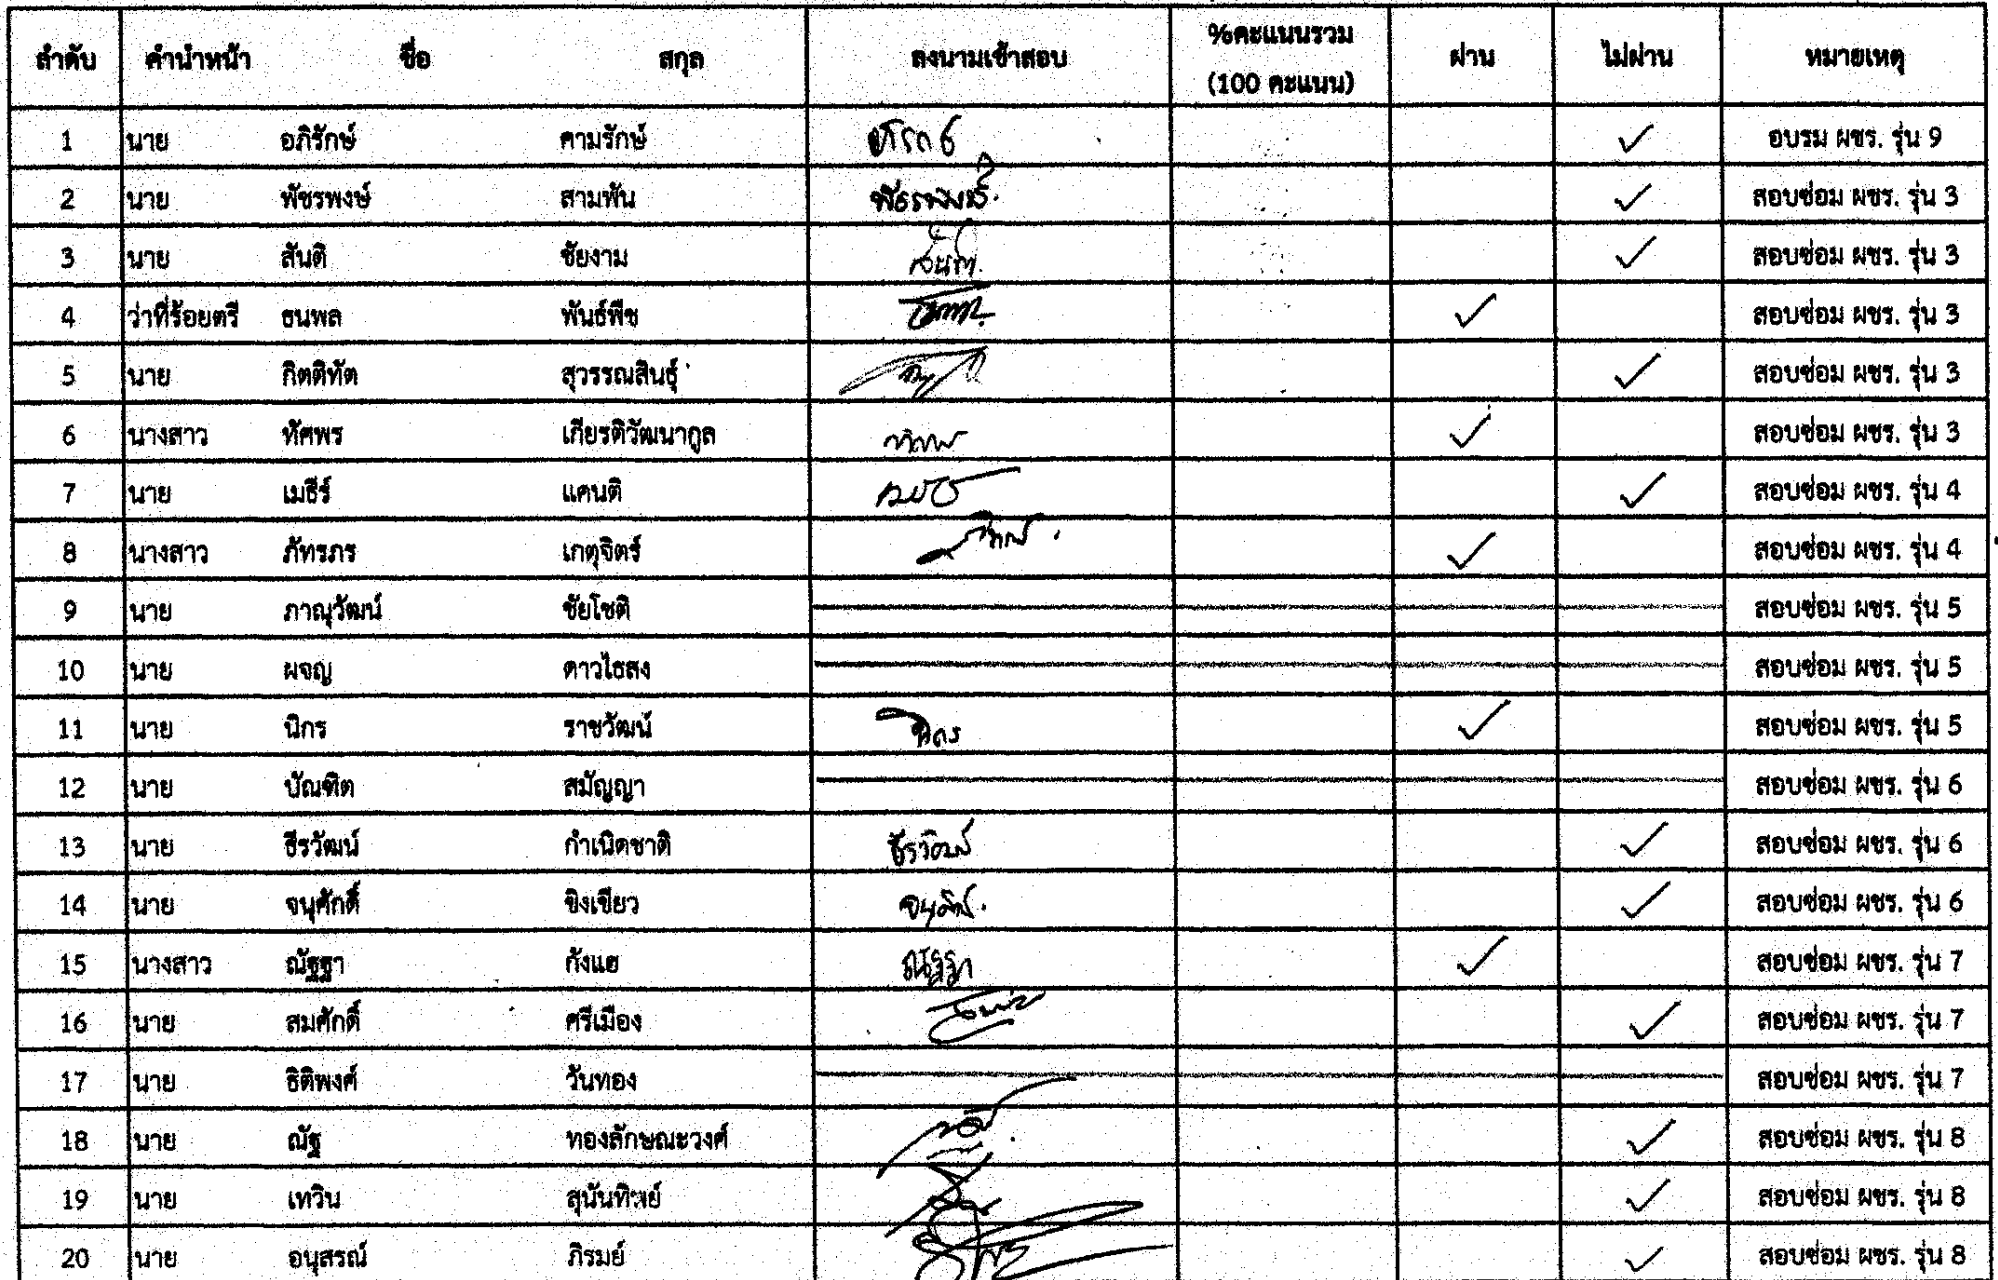 ลำดับ คำนำหน้า ชื่อ สกุล ลงนามเข้าสอบ %คะแนนรวม (100 คะแนน) ผ่าน ไม่ผ่าน หมายเหตุ
1 นาย อภิรักษ์ คามรักษ์ ✓ อบรม ผชร. รุ่น 9
2 นาย พัชรพงษ์ สามพัน พัชรพงษ์ ✓ สอบซ่อม ผชร. รุ่น 3
3 นาย สันติ ชัยงาม สันติ ✓ สอบซ่อม ผชร. รุ่น 3
4 ว่าที่ร้อยตรี ธนพล พันธ์พืช ✓ สอบซ่อม ผชร. รุ่น 3
5 นาย กิตติทัต สุวรรณสินธุ์ ✓ สอบซ่อม ผชร. รุ่น 3
6 นางสาว ทัศพร เกียรติวัฒนากูล ✓ สอบซ่อม ผชร. รุ่น 3
7 นาย เมธีร์ แคนติ ✓ สอบซ่อม ผชร. รุ่น 4
8 นางสาว ภัทรภร เกตุจิตร์ ✓ สอบซ่อม ผชร. รุ่น 4
9 นาย ภาณุวัฒน์ ชัยโชติ สอบซ่อม ผชร. รุ่น 5
10 นาย ผจญ ดาวไธสง สอบซ่อม ผชร. รุ่น 5
11 นาย นิกร ราชวัฒน์ นิกร ✓ สอบซ่อม ผชร. รุ่น 5
12 นาย บัณฑิต สมัญญา สอบซ่อม ผชร. รุ่น 6
13 นาย ธีรวัฒน์ กำเนิดชาติ ธีรวัฒน์ ✓ สอบซ่อม ผชร. รุ่น 6
14 นาย จนุศักดิ์ ขิงเขียว ✓ สอบซ่อม ผชร. รุ่น 6
15 นางสาว ณัฐฐา กังแฮ ณัฐฐา ✓ สอบซ่อม ผชร. รุ่น 7
16 นาย สมศักดิ์ ศรีเมือง ✓ สอบซ่อม ผชร. รุ่น 7
17 นาย ธิติพงศ์ วันทอง สอบซ่อม ผชร. รุ่น 7
18 นาย ณัฐ ทองลักษณะวงศ์ ✓ สอบซ่อม ผชร. รุ่น 8
19 นาย เทวิน สุนันทิพย์ ✓ สอบซ่อม ผชร. รุ่น 8
20 นาย อนุสรณ์ ภิรมย์ ✓ สอบซ่อม ผชร. รุ่น 8